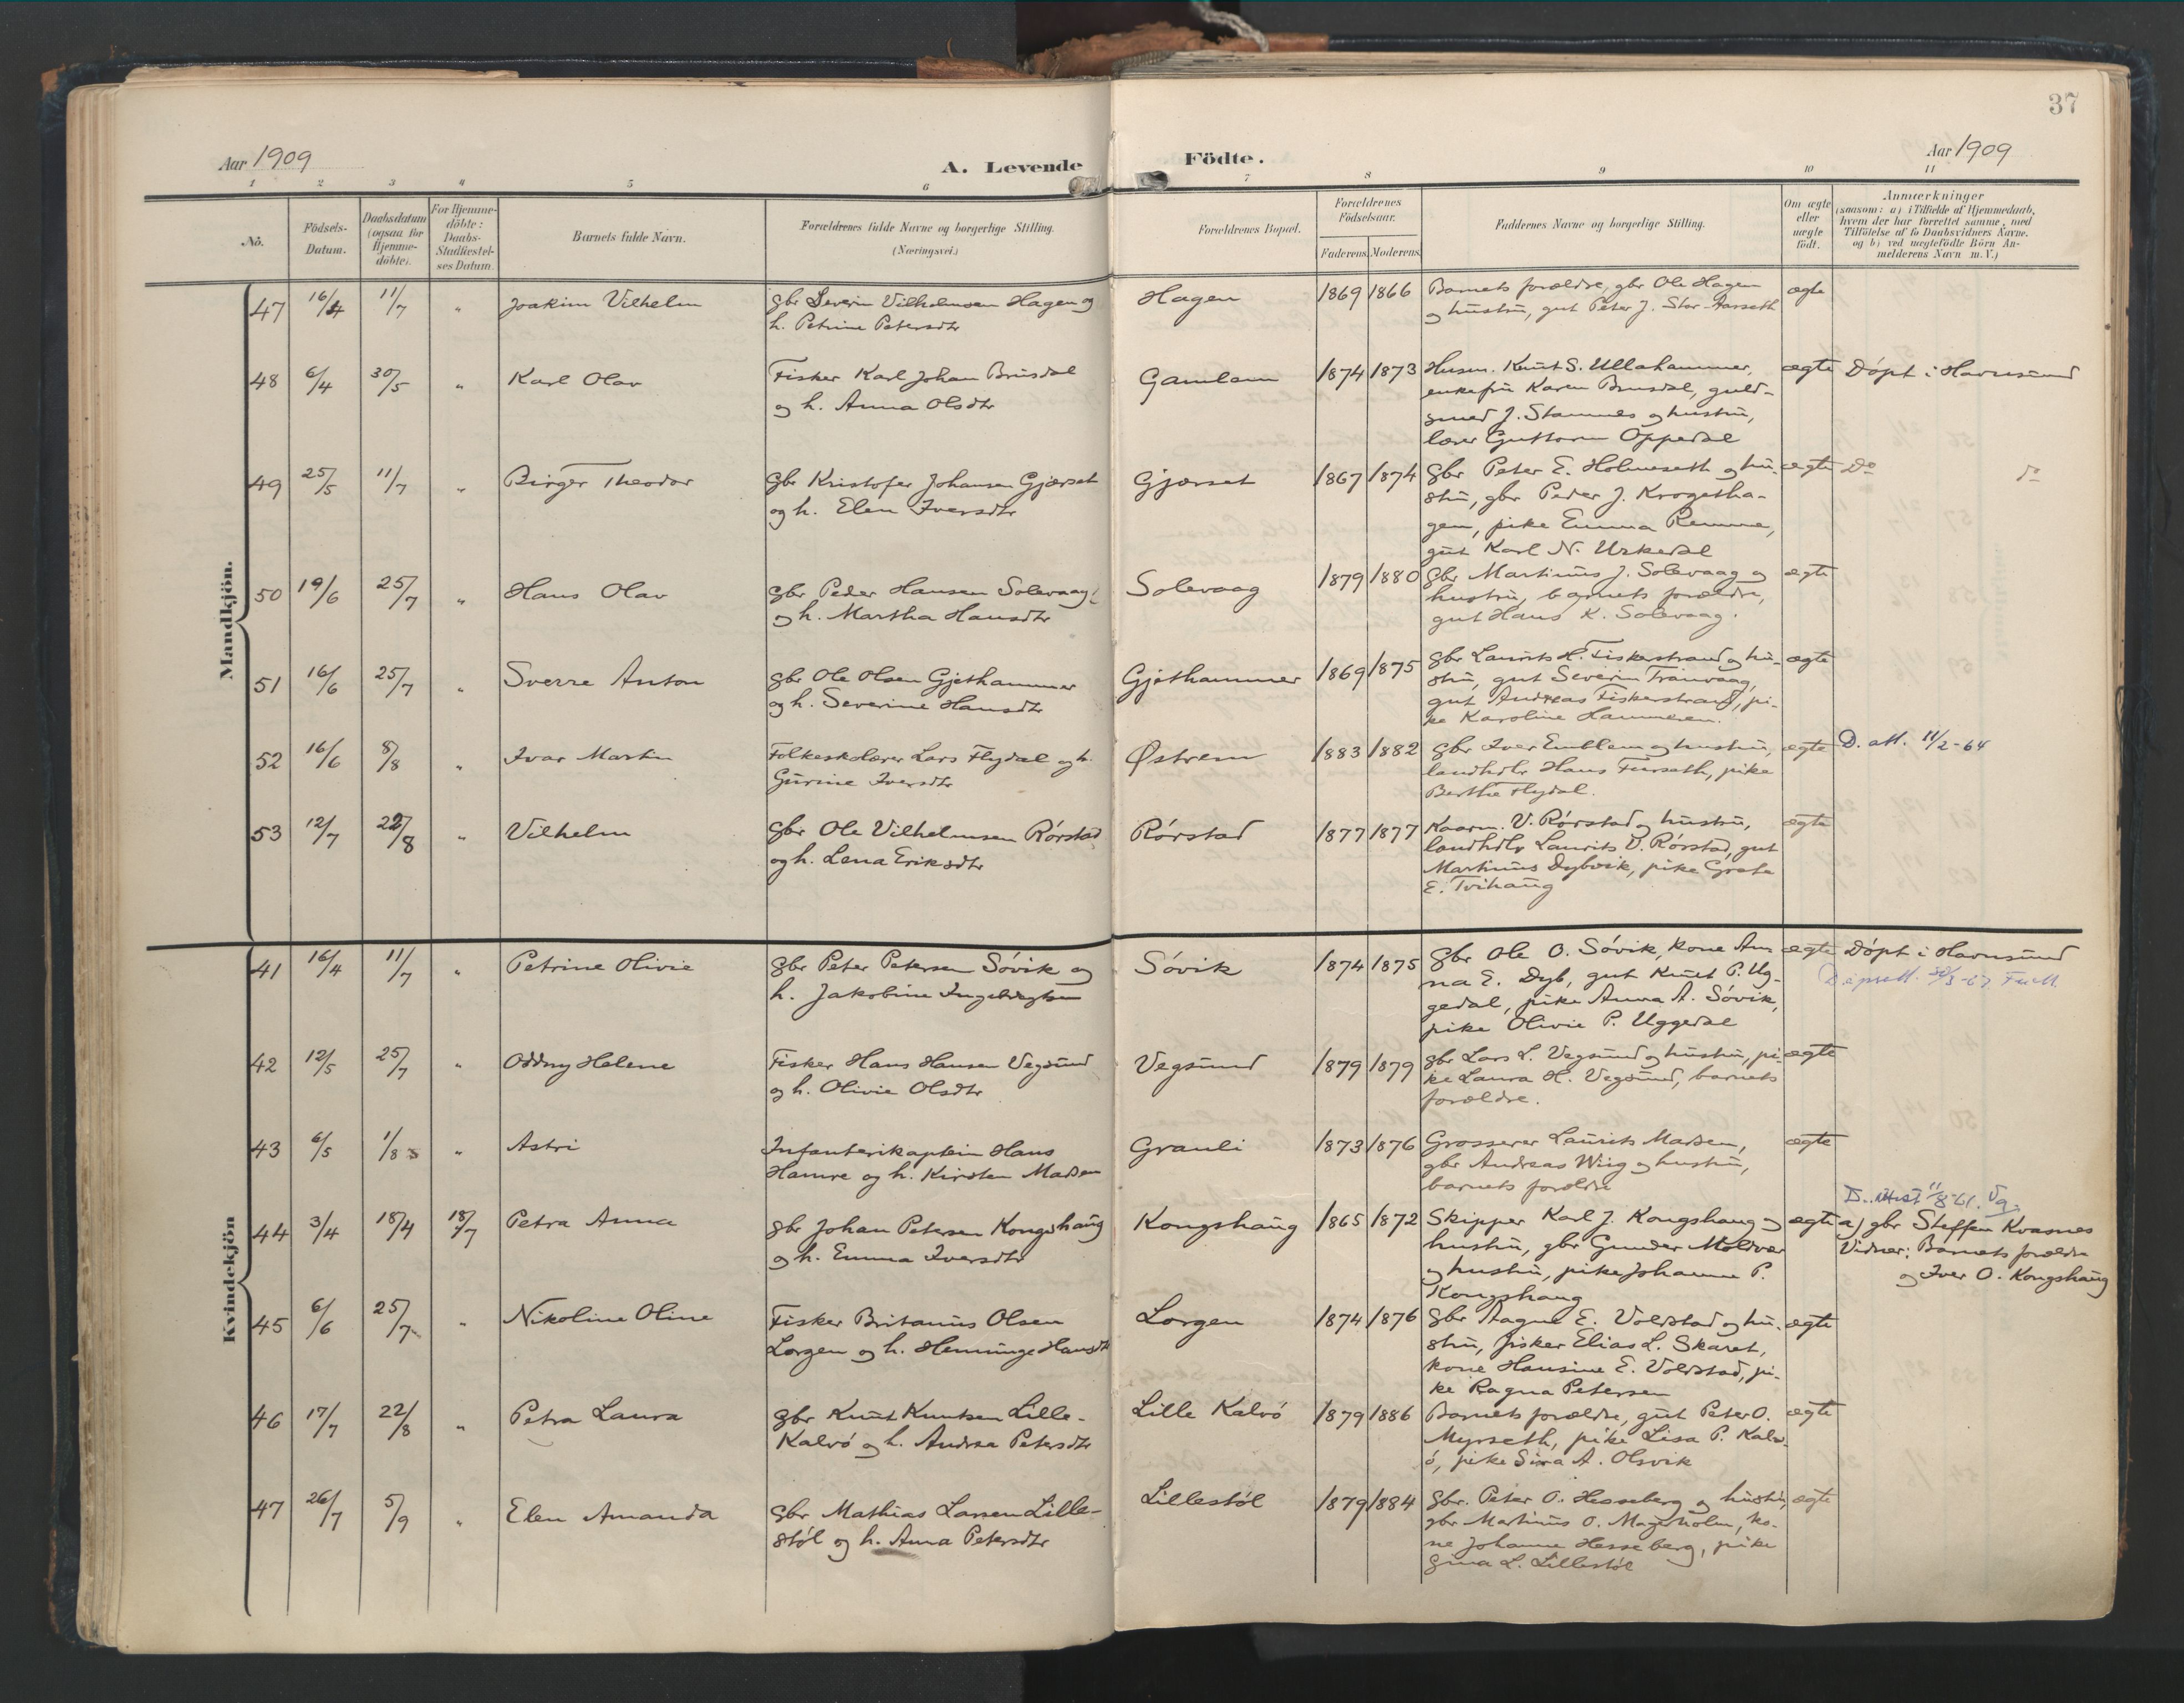 37
Aar 1909
A. Levende Födte.
Aar 1909
1 2 3 4 5 6 7 8 9 10 11
No.
Födsels-Datum.
Daabsdatum (ogsaa for Hjemme-döbte).
For Hjemme-döbte: Daabs-Stadfæstel-ses Datum.
Barnets fulde Navn.
Forældrenes fulde Navne og borgerlige Stilling.
(Næringsvei.)
Forældrenes Bopæl.
Forældrenes Födselsaar.
Faderens. Moderens.
Faddernes Navne og borgerlige Stilling.
Om ægte eller uægte födt.
Anmærkninger
(saasom: a) i Tilfælde af Hjemmedaab,
hvem der har forrettet samme, med
Tilföielse af to Daabsvidners Navne,
og b) ved uægtefödte Börn An-
melderens Navn m. V.)
Mandkjön.
47 16/4 11/7 " Joakim Vilhelm
gbr Severin Vilhelmsen Hagen og
h. Petrine Petersdtr
Hagen 1869 1866
Barnets forældre, gbr Ole Hagen
og hustru, gut Peter J. Stor-Aarseth
ægte
48 6/4 30/5 " Karl Olav
Fisker Karl Johan Brusdal
og h. Anna Olsdtr
Gamlem 1874 1873
Husm. Knut S. Ullahammer,
enkefru Karen Brusdal, guld-
smed J. Stamnes og hustru,
lærer Guttorm Oppedal
ægte Döpt i Havnsund
49 25/5 11/7 " Birger Theodor
gbr Kristofer Johansen Gjærset
og h. Elen Iversdtr
Gjærset 1867 1874
gbr Peter E. Holmeseth og hu-
stru, gbr Peder J. Krogetha-
gen, pike Emma Remme,
gut Karl N. Urkedal
ægte Do do
50 19/6 25/7 " Hans Olav
gbr Peder Hansen Solevaag
og h. Martha Hansdtr
Solevaag 1879 1880
gbr Martinus J. Solevaag og
hustru, barnets forældre,
gut Hans K. Solevaag.
ægte
51 16/6 25/7 " Sverre Anton
gbr Ole Olsen Gjethammer
og h. Severine Hansdtr
Gjethammer 1869 1875
gbr Laurits H. Fiskerstrand og hu-
stru, gut Severin Tranvaag,
gut Andreas Fiskerstrand, pi-
ke Karoline Hammeren.
ægte
52 16/6 8/8 " Ivar Martin
Folkeskolærer Lars Flydal og h.
Gurine Iversdtr
Østrem 1883 1882
gbr Iver Emblem og hustru,
landhdlr Hans Furseth, pike
Berthe Flydal.
ægte D. att. 11/2-64
53 12/7 22/8 " Vilhelm
gbr Ole Vilhelmsen Rörstad
og h. Lena Eriksdtr
Rörstad 1877 1877
Kaarm. V. Rörstad og hustru,
landhdlr Laurits V. Rörstad, gut
Martinus Dybvik, pike Grete
E. Tvihaug
ægte
Kvindekjön
41 16/4 11/7 " Petrine Olivie
gbr Peter Petersen Sövik og
h. Jakobine Ingebrigtsen
Sövik 1874 1875
gbr Ole O. Sövik, kone An-
na E. Dyb, gut Knut P. Ug-
gedal, pike Anna A. Sövik,
pike Olivie P. Uggedal
ægte Döpt i Havnsund
42 12/5 25/7 " Oddny Helene
Fisker Hans Hansen Vegsund
og h. Olivie Olsdtr
Vegsund 1879 1879
gbr Lars L. Vegsund og hustru, pi-
ke Laura H. Vegsund, barnets
forældre.
ægte
43 6/5 1/8 " Astri
Infanterikaptein Hans
Hamre og h. Kirsten Madsen
Granli 1873 1876
Grosserer Laurits Madsen,
gbr Andreas Wiig og hustru,
barnets forældre
ægte
44 3/4 18/4 18/7 Petra Anna
gbr Johan Petersen Kongshaug
og h. Emma Iversdtr
Kongshaug 1865 1872
Skipper Karl J. Kongshaug og
hustru, gbr Gunder Moldvær
og hustru, pike Johanne P.
Kongshaug
ægte
D. attest 11/8-61.
a) gbr Steffen Kvasnes
Vidner: Barnets forældre
og Iver O. Kongshaug
45 6/6 25/7 " Nikoline Oline
Fisker Britanus Olsen
Lorgen og h. Henninge Hansdtr
Lorgen 1874 1876
gbr Aagne E. Voldstad og hu-
stru, fisker Elias L. Skaret,
kone Hansine E. Voldstad, pi-
ke Ragna Petersen
ægte
46 17/7 22/8 " Petra Laura
gbr Knut Knutsen Lille-
Kalvö og h. Andrea Petersdtr
Lille Kalvö 1879 1886
Barnets forældre, gut Peter O.
Myrseth, pike Lisa P. Kalv-
ö, pike Sina A. Olsvik
ægte
47 26/7 5/9 " Elen Amanda
gbr Mathias Larsen Lille-
stöl og h. Anna Petersdtr
Lillestöl 1879 1884
gbr. Peter O. Hesseberg og hustru,
gbr Martinus O. Magerholm, ko-
ne Johanne Hesseberg, pike
Gina L. Lillestöl
ægte